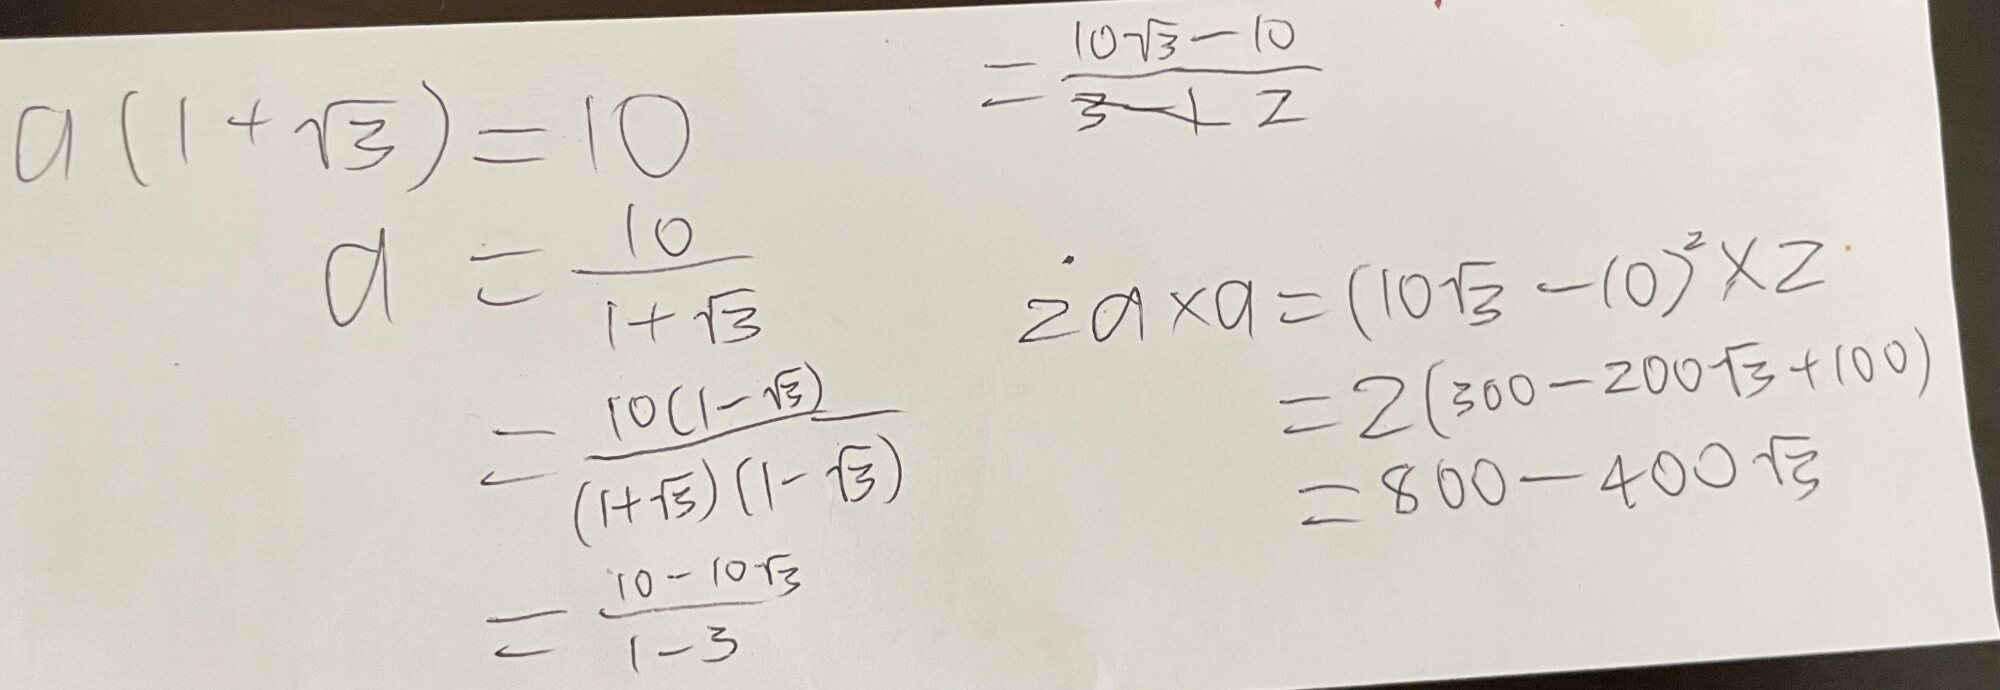 a(1+√3)=10
a = 10/(1+√3)
= 10(1-√3)/((1+√3)(1-√3))
= (10-10√3)/(1-3)
= (10√3-10)/2
2a×a=(10√3-10)²×2
=2(300-200√3+100)
=800-400√3